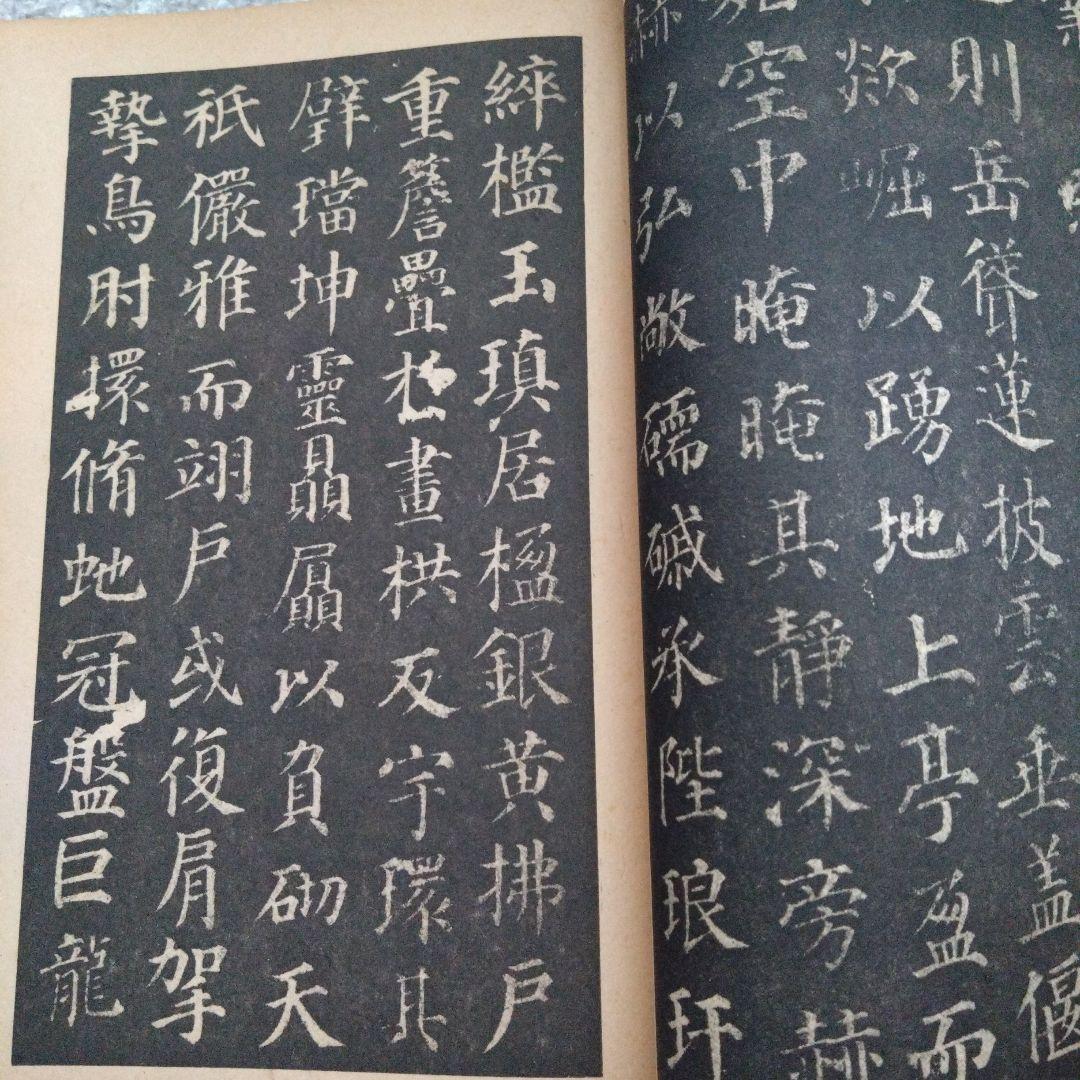 則岳聳蓮披雲垂盖偃
欻崛以踴地上亭盈而
空中晻晻其靜深旁赫
赫以弘敞礝磩承陛琅玕
綷檻玉瑱居楹銀黄拂户
重簷疊扵畫栱反宇環其
璧璫坤靈贔屭以負砌天
祇儼雅而翊户或復肩拏
摯鳥肘擐脩虵冠盤巨龍